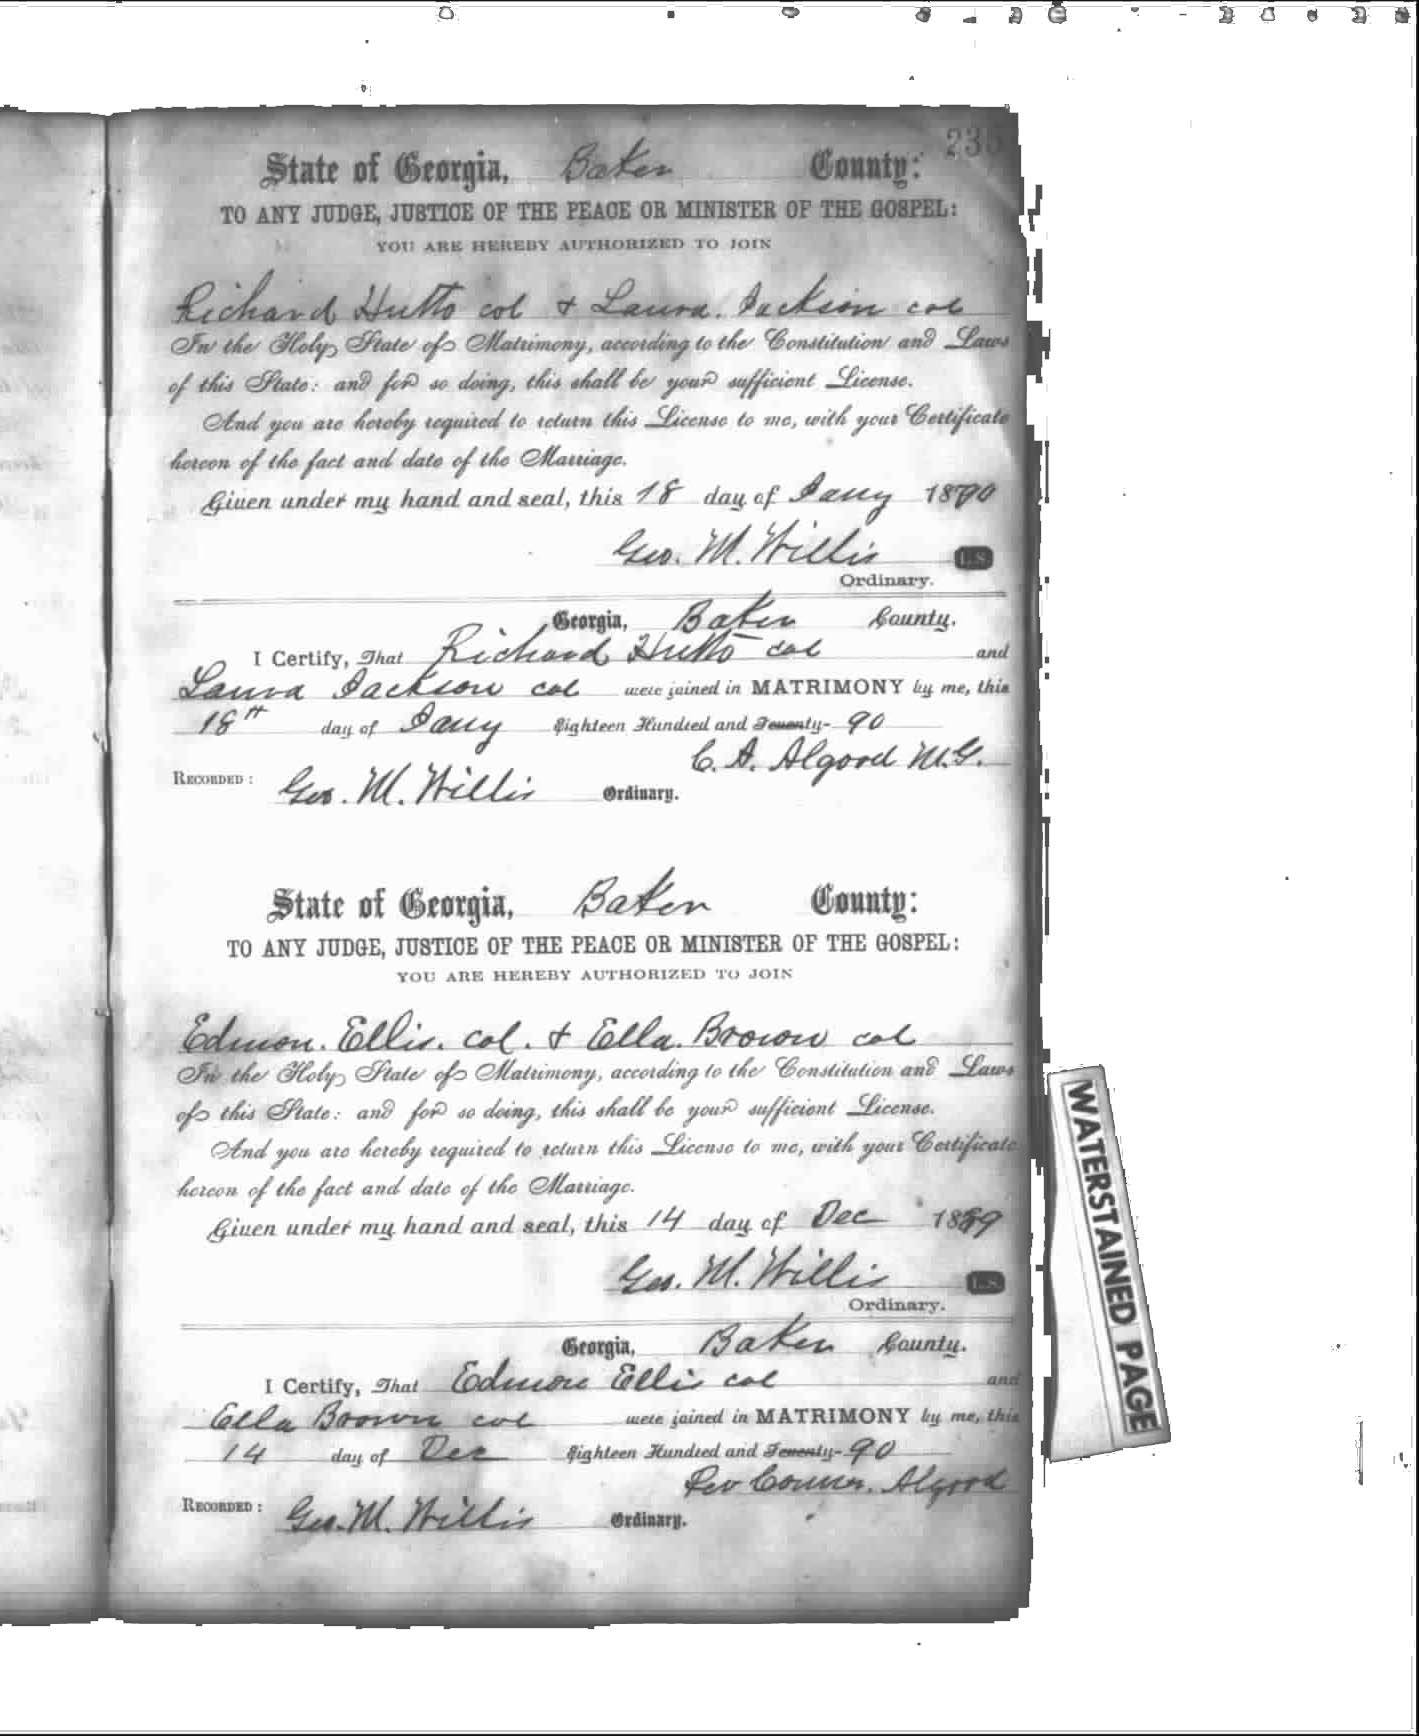 235
State of Georgia, Baker County:
TO ANY JUDGE, JUSTICE OF THE PEACE OR MINISTER OF THE GOSPEL:
YOU ARE HEREBY AUTHORIZED TO JOIN
Richard Hutto col & Laura. Jackson col
In the Holy State of Matrimony, according to the Constitution and Laws
of this State: and for so doing, this shall be your sufficient License.
And you are hereby required to return this License to me, with your Certificate
hereon of the fact and date of the Marriage.
Given under my hand and seal, this 18 day of Jany 1890
Geo. M. Willis L.S.
Ordinary.
Georgia, Baker County.
I Certify, That Richard Hutto col and
Laura Jackson col were joined in MATRIMONY by me, this
18th day of Jany Eighteen Hundred and Twenty- 90
C. A. Algood M.G.
RECORDED: Geo. M. Willis Ordinary.
State of Georgia, Baker County:
TO ANY JUDGE, JUSTICE OF THE PEACE OR MINISTER OF THE GOSPEL:
YOU ARE HEREBY AUTHORIZED TO JOIN
Edmon. Ellis. col. & Ella. Brown col
In the Holy State of Matrimony, according to the Constitution and Laws
of this State: and for so doing, this shall be your sufficient License.
And you are hereby required to return this License to me, with your Certificate
hereon of the fact and date of the Marriage.
Given under my hand and seal, this 14 day of Dec 1889
Geo. M. Willis L.S.
Ordinary.
Georgia, Baker County.
I Certify, That Edmon Ellis col and
Ella Brown col were joined in MATRIMONY by me, this
14 day of Dec Eighteen Hundred and Twenty- 90
Rev Algood
RECORDED: Geo. M. Willis Ordinary.
WATERSTAINED PAGE